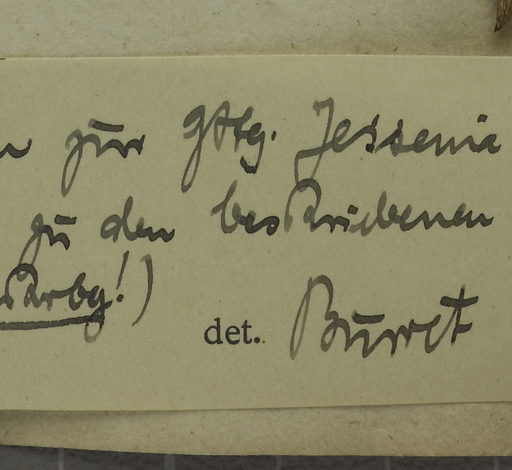 zur Gttg. Jessenia
zu den beschriebenen
det. Burret